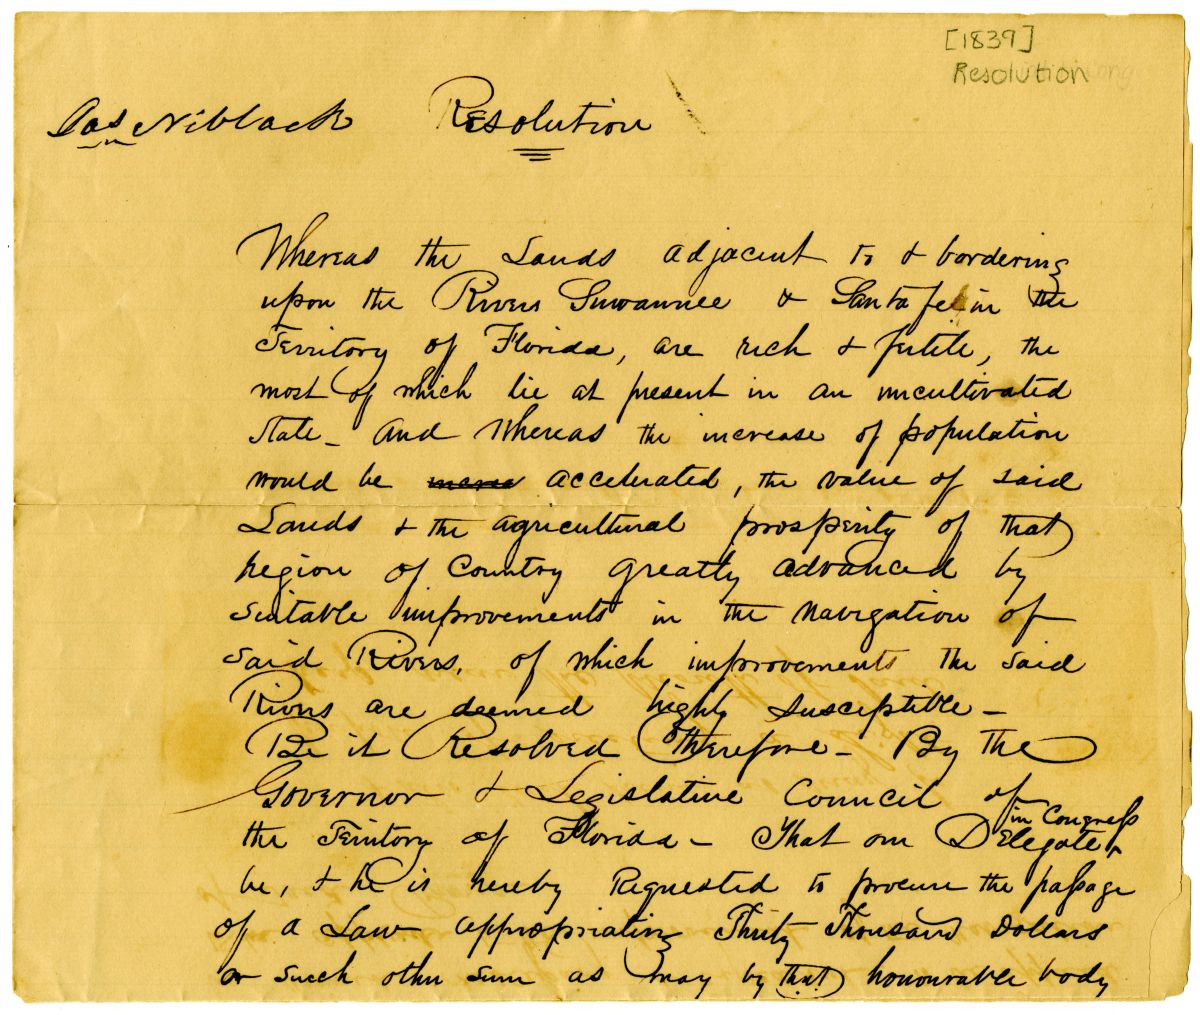 [1839]
Resolution
Jas Niblack Resolution
Whereas the Lands adjacent to & bordering
upon the Rivers Suwannee & Santa fe in the
Territory of Florida, are rich & fertile, the
most of which lie at present in an uncultivated
state - And Whereas the increase of population
would be accelerated, the value of said
Lands & the agricultural prosperity of that
region of Country greatly advanced by
suitable improvements in the navigation of
said Rivers, of which improvements the said
Rivers are deemed highly susceptible -
Be it Resolved Therefore - By the
Governor & Legislative Council of
the Territory of Florida - That our Delegate in Congress
be, & he is hereby Requested to procure the passage
of a Law appropriating Thirty Thousand Dollars
or such other sum as may by that honourable body